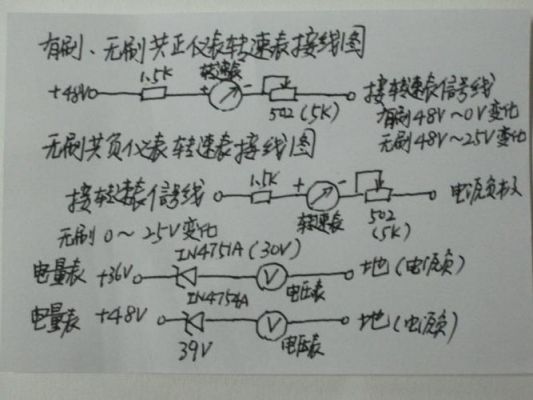 有刷、无刷共正仪表转速表接线图
+48V 1.5K + 转速表 - 502 (5K) 接转速表信号线
有刷48V~0V变化
无刷48V~25V变化
无刷共负仪表转速表接线图
接转速表信号线 1.5K + 转速表 - 502 (5K) 电源负极
无刷0~25V变化
电量表 +36V IN4751A (30V) V 电压表 地(电源负)
电量表 +48V IN4754A 39V V 电压表 地(电源负)